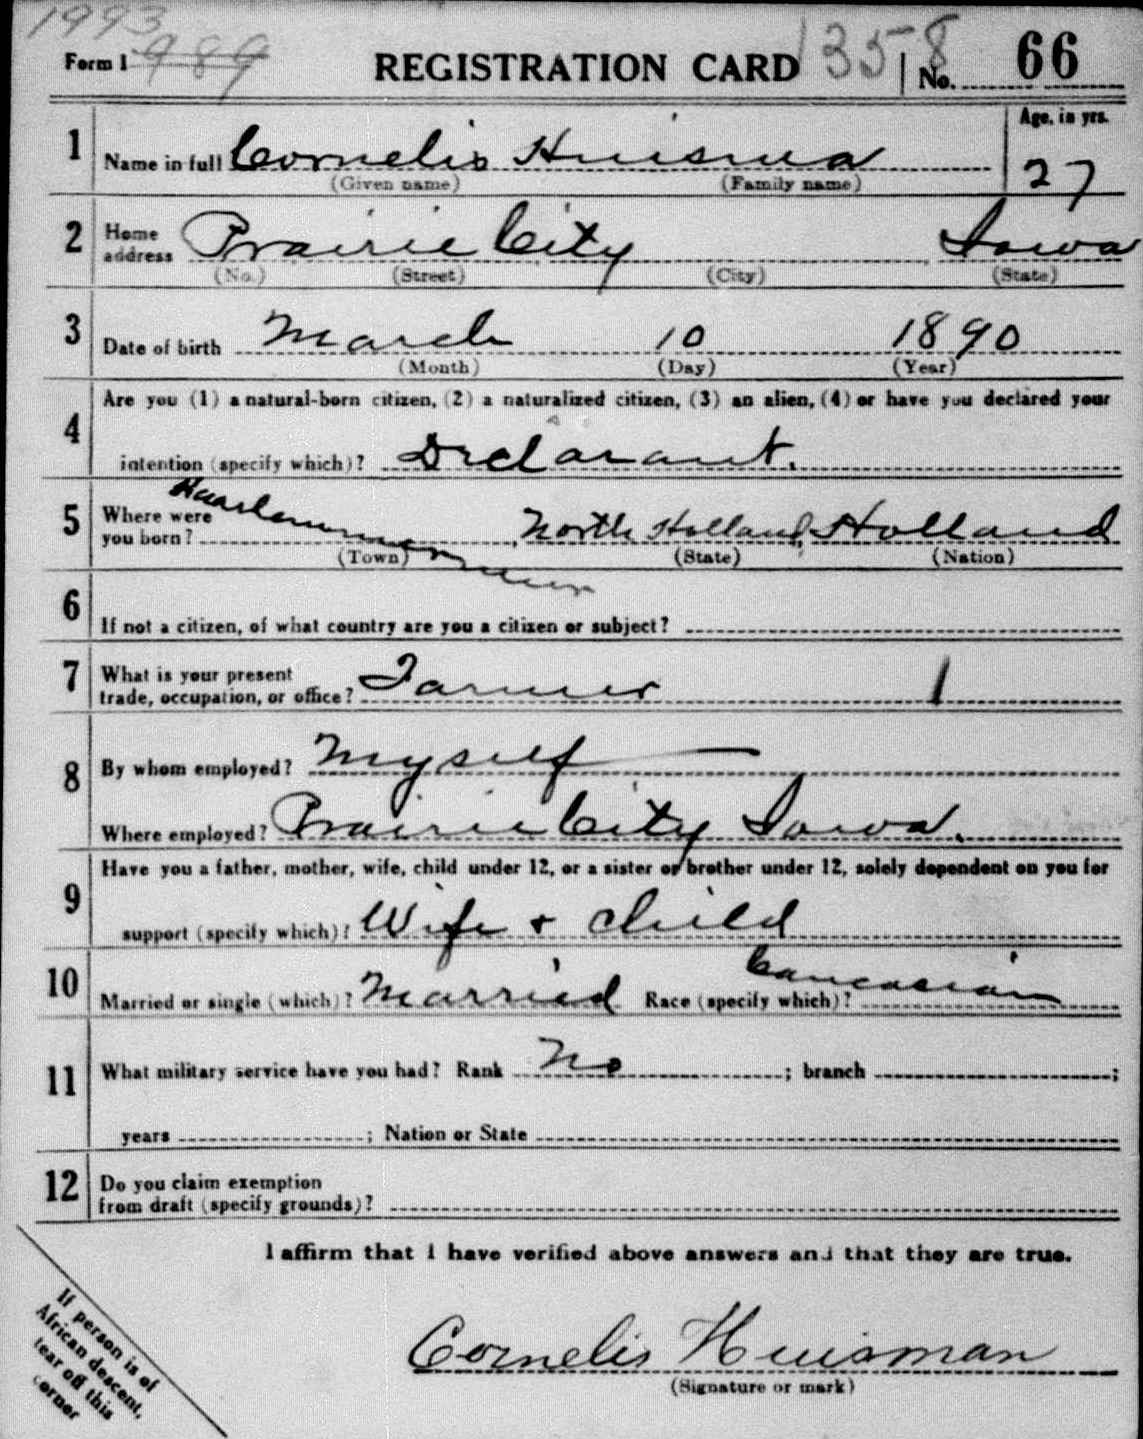 1993
Form 1 989 REGISTRATION CARD 1358 No. 66
1 Name in full Cornelis Huisma Age, in yrs. 27
(Given name) (Family name)
2 Home address Prairie City Iowa
(No.) (Street) (City) (State)
3 Date of birth March 10 1890
(Month) (Day) (Year)
4 Are you (1) a natural-born citizen, (2) a naturalized citizen, (3) an alien, (4) or have you declared your
intention (specify which)? Declarant.
5 Where were you born? Haarlemmermeer, North Holland, Holland
(Town) (State) (Nation)
6 If not a citizen, of what country are you a citizen or subject?
7 What is your present
trade, occupation, or office? Farmer 1
8 By whom employed? Myself
Where employed? Prairie City Iowa.
9 Have you a father, mother, wife, child under 12, or a sister or brother under 12, solely dependent on you for
support (specify which)? Wife + child
10 Married or single (which)? Married Race (specify which)? Caucasian
11 What military service have you had? Rank No ; branch ;
years ; Nation or State
12 Do you claim exemption
from draft (specify grounds)?
I affirm that I have verified above answers and that they are true.
Cornelis Huisman
(Signature or mark)
If person is of
African descent,
tear off this
corner